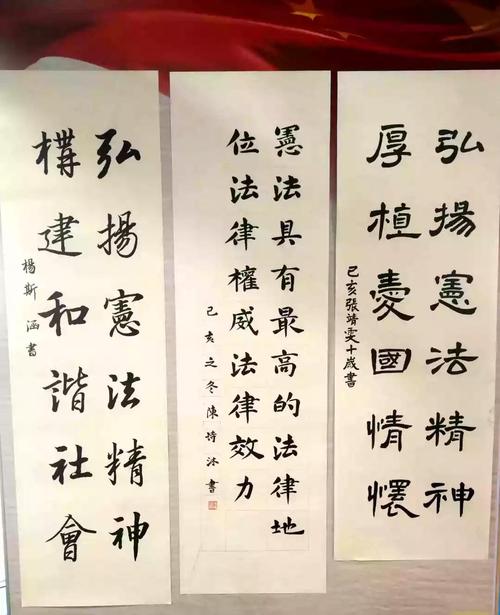 弘揚憲法精神
厚植憂國情懷
己亥張靖雯十歲書
憲法具有最高的法律地
位法律權威法律效力
己亥之冬陳詩沐書
弘揚憲法精神
構建和諧社會
楊斯涵書